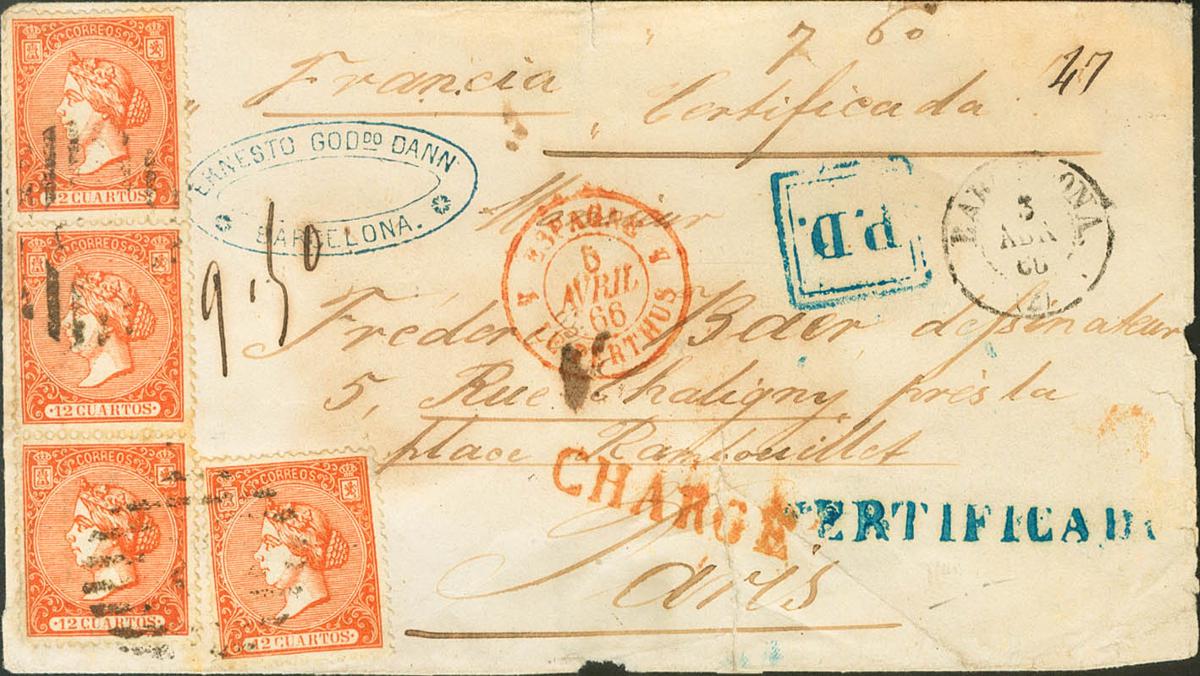 CORREOS
12 CUARTOS
CORREOS
12 CUARTOS
CORREOS
12 CUARTOS
CORREOS
12 CUARTOS
7 60
47
Francia Certificada
ERNESTO GODDO DANN
BARCELONA.
9.50
ESPAGNE
5
AVRIL
66
LE PERTHUS
P.D.
BARCELONA
3
ABR
66
Monsieur
Frederic Baer dessinateur
5, Rue Chaligny près la
place Rambouillet
CHARGÉ
CERTIFICADO
Paris